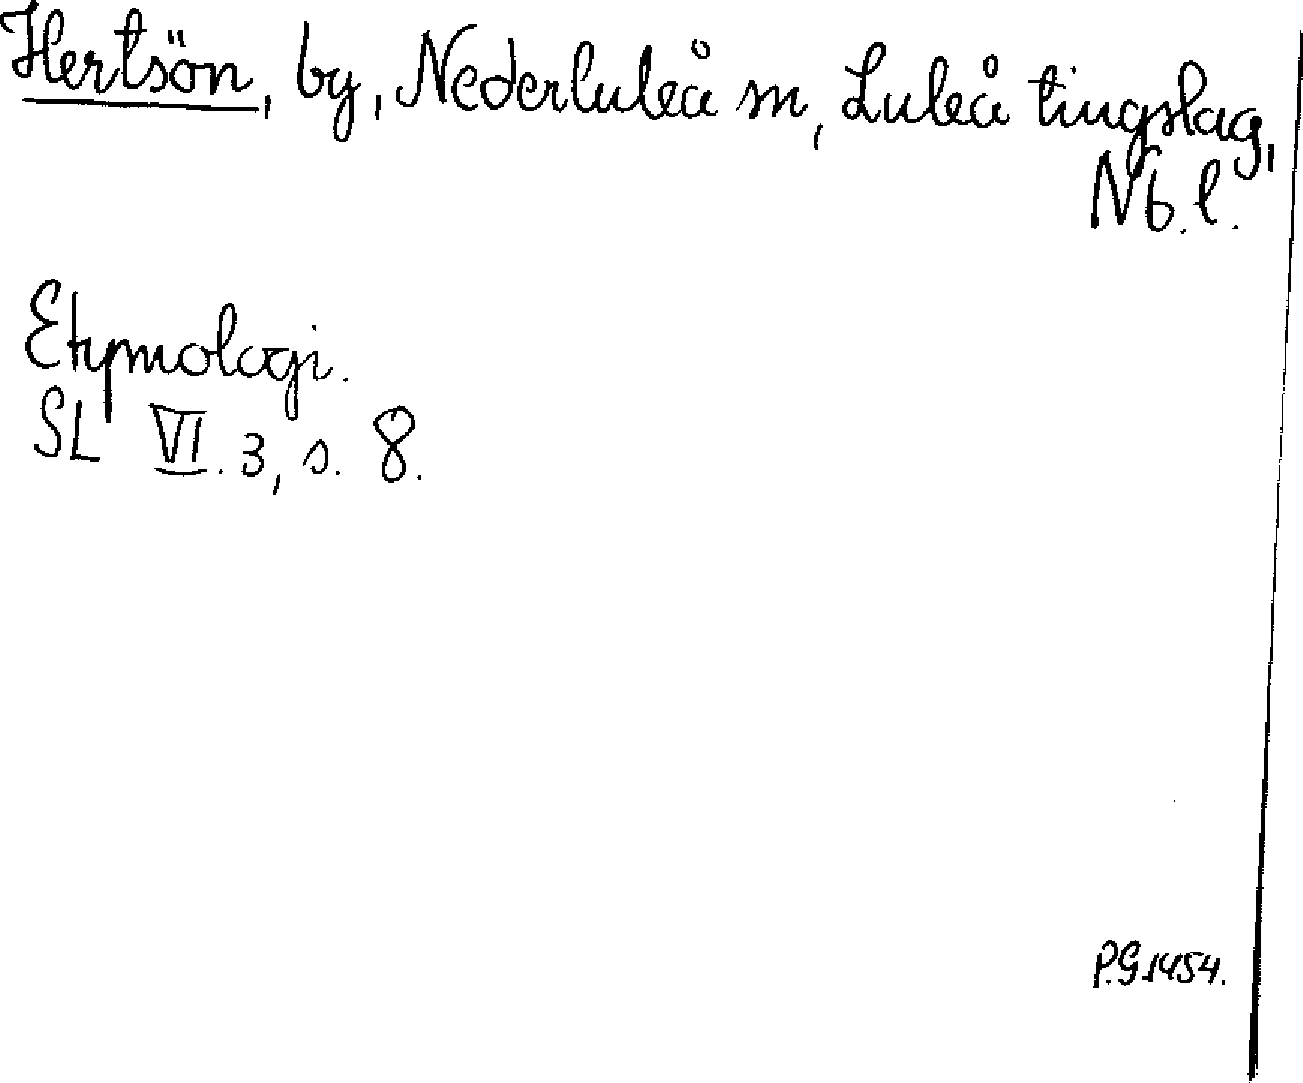 Hertsön, by, Nederluleå sn, Luleå tingslag,
Nb.l.
Etymologi.
SL VI.3, s. 8.
P.G.1454.